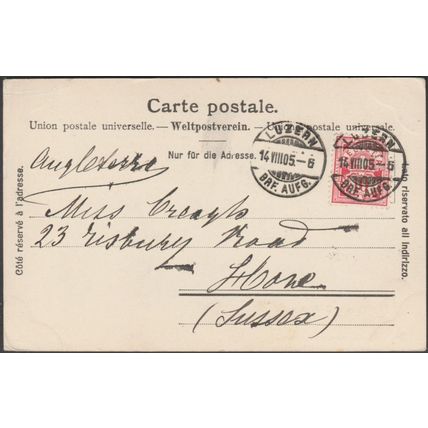 Carte postale.
Union postale universelle. — Weltpostverein. — Union postale universale.
Nur für die Adresse.
LUZERN
14 VIII 05 – 6
BRF. AUFG.
LUZERN
14 VIII 05 – 6
BRF. AUFG.
Angleterre
Côté réservé à l'adresse.
Lato riservato all indirizzo.
Miss Creagh
23 Tisbury Road
Hove
(Sussex)